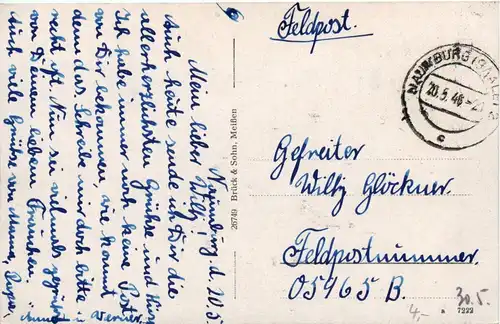 Naumburg, d. 20.5.
Mein lieber Willy!
Auch heute sende ich Dir die
allerherzlichsten Grüße und Küsse
Ich habe immer noch keine Post
von Dir bekommen, wie kommt
denn das. Schreibe mir doch bitte
recht oft. Nun sei vielmals gegrüßt
von Deinem lieben Frauchen
Auch viele Grüße von Mama, Papa,
Werner
26749 Brück & Sohn, Meißen
Feldpost.
NAUMBURG (SAALE)
20.5.4
c
Gefreiter
Willy Glöckner.
Feldpostnummer.
05465 B.
4,-
30.5.
7222